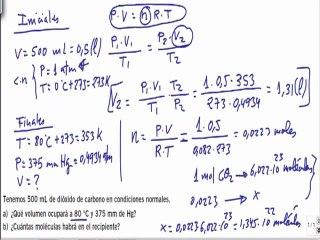 Iniciales
P·V = n R·T
V = 500 mL = 0,5(l)
c.n { P = 1 atm
T = 0°C + 273 = 273K
P₁·V₁ / T₁ = P₂·V₂ / T₂
V₂ = P₁·V₁ / T₁ · T₂ / P₂ = 1·0,5·353 / 273·0,4934 = 1,31(l)
Finales
T = 80°C + 273 = 353K
P = 375 mm Hg = 0,4934 atm
V = ?
n = P·V / R·T = 1·0,5 / 0,082·273 = 0,0223 moles
1 mol CO₂ → 6,022·10²³ moléculas
0,0223 → x
x = 0,0223·6,022·10²³ = 1,345·10²² moléculas
Tenemos 500 mL de dióxido de carbono en condiciones normales.
a) ¿Qué volumen ocupará a 80 °C y 375 mm de Hg?
b) ¿Cuántas moléculas habrá en el recipiente?